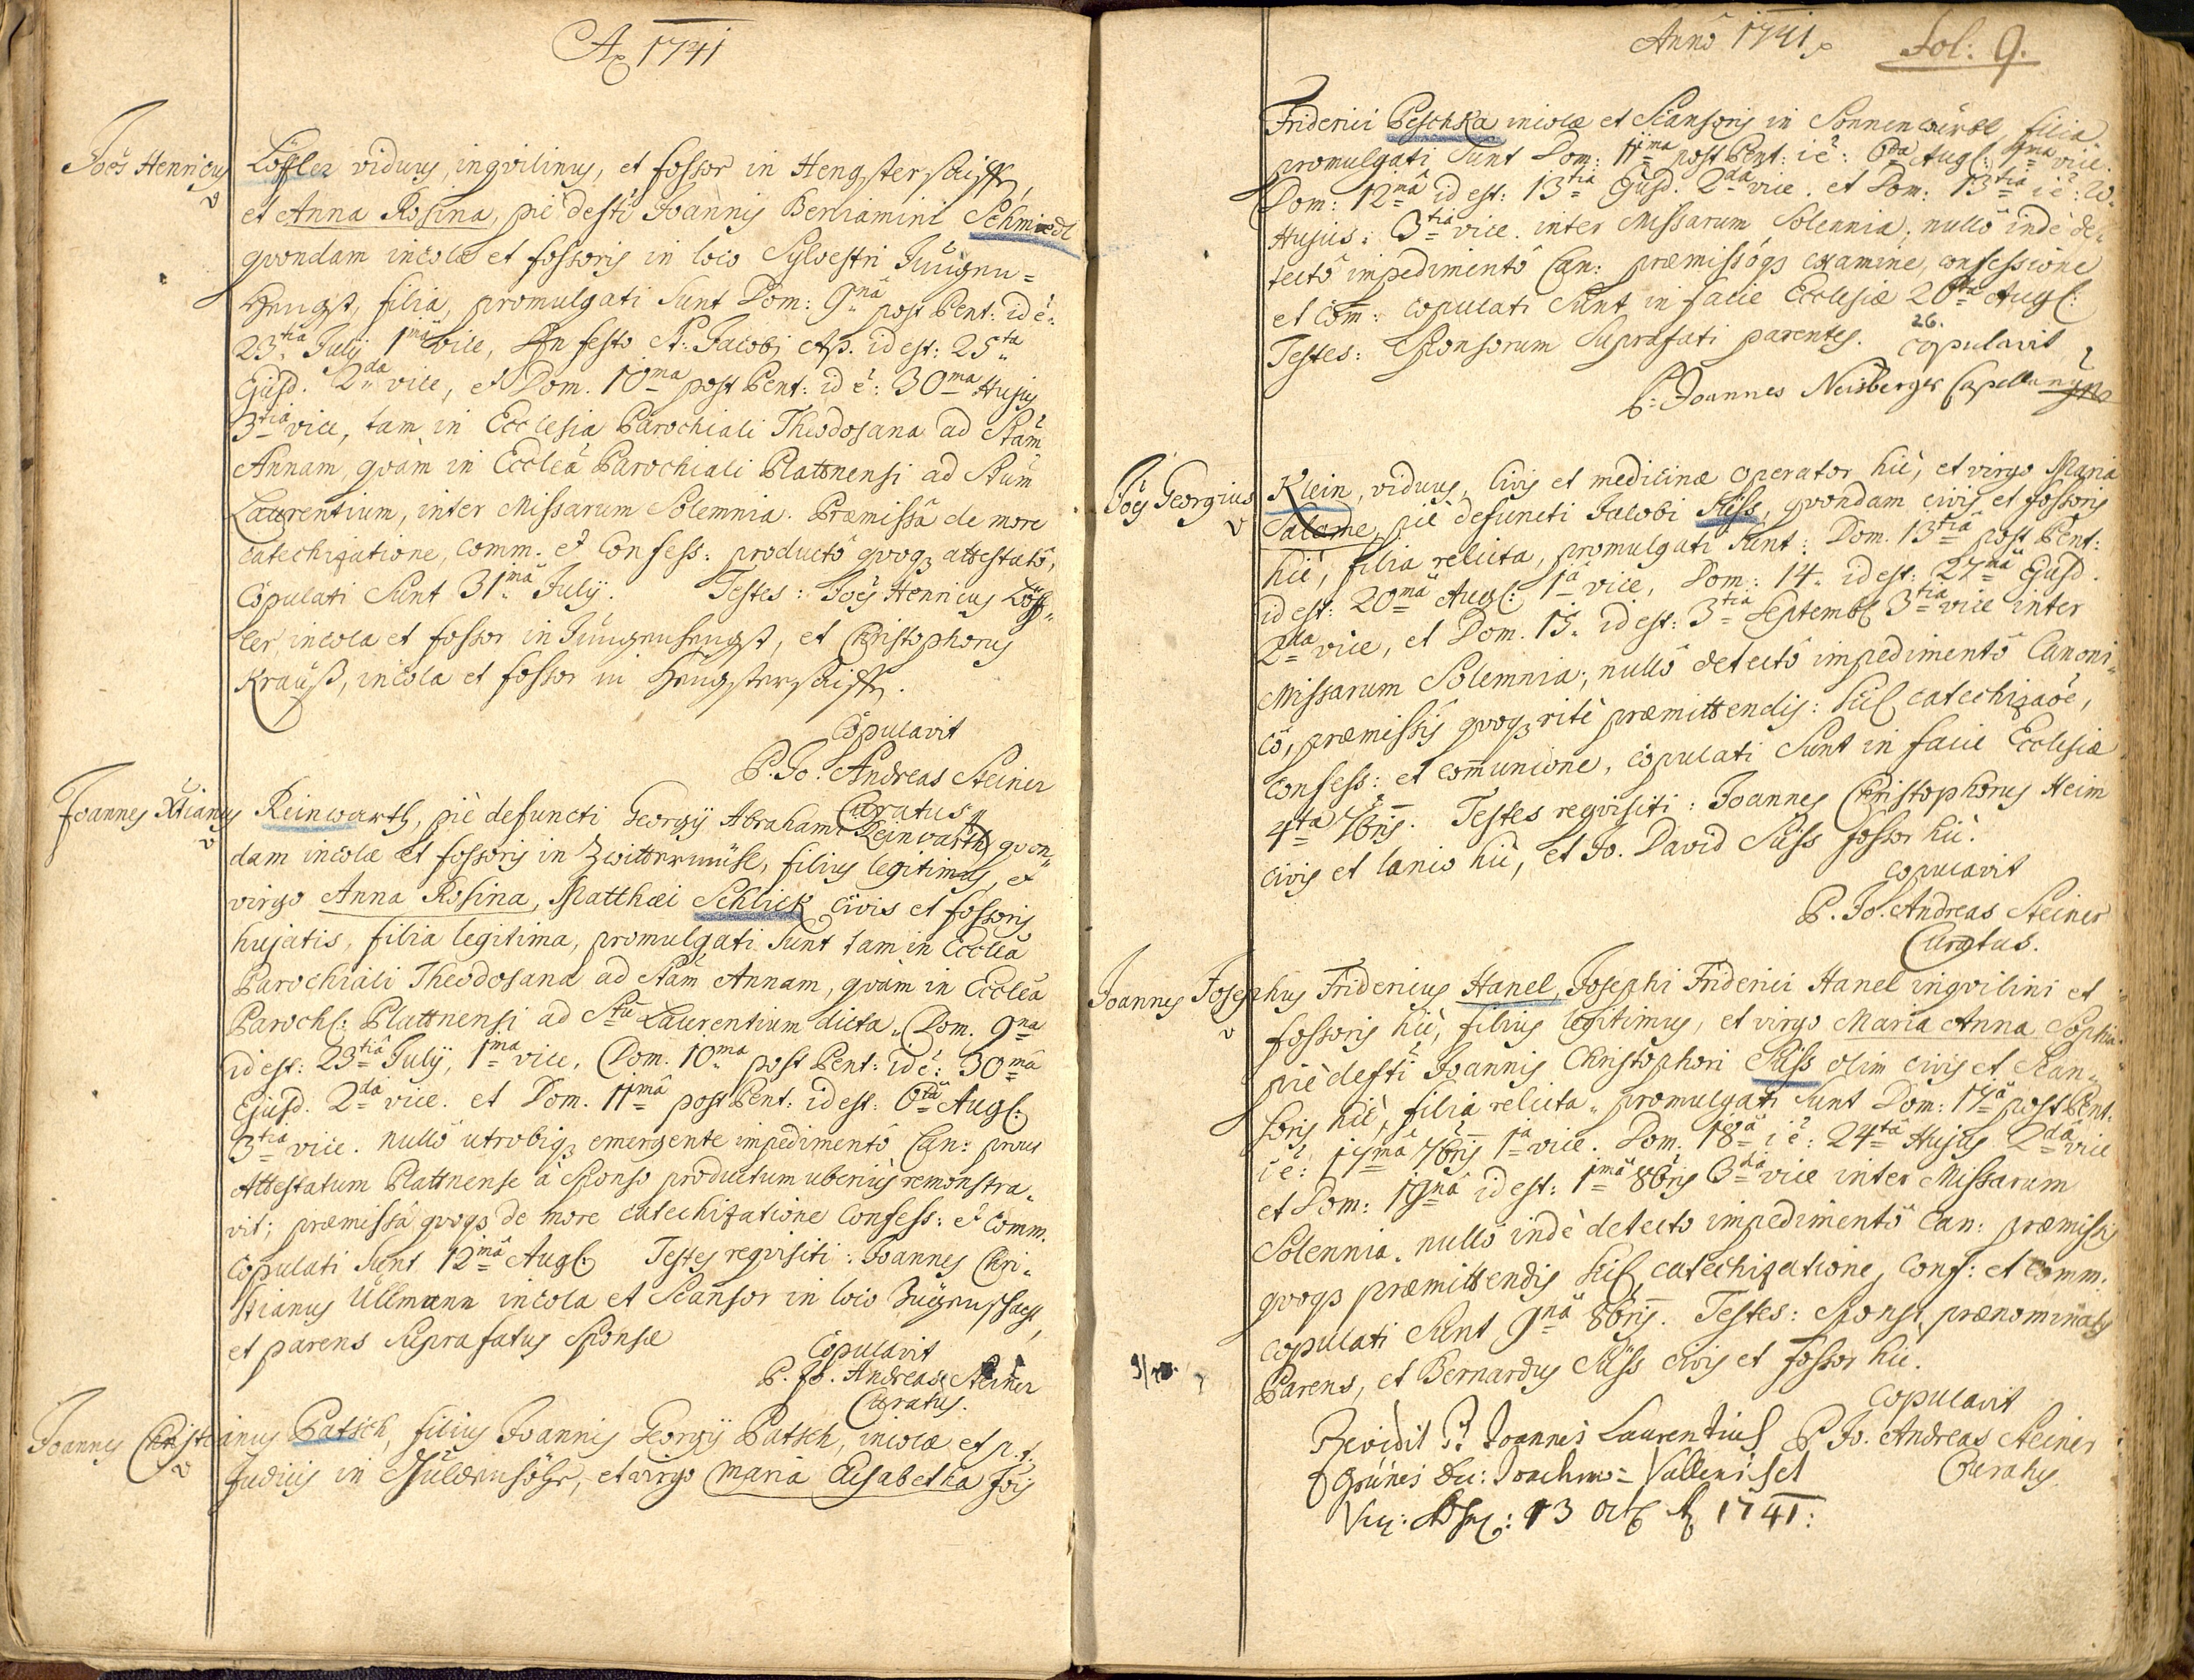 Aō 1741
Joēs Henricus Löffler viduus, inqvilinus, et fossor in Hengstersaiffn,
et Anna Rosina, piè defti Joannis Beniamini Schmiedl
qvondam incolæ et fossoris in loco Sylvestri Jüngen=
Hengst, filia, promulgati sunt Dom: 9nâ post Pent: id ē:
23tiâ Julij 1mâ vice, In festo S. Jacobi Ap. id est: 25ta
Ejusd. 2dâ vice, et Dom. 10ma post Pent: id ē: 30ma Hujus
3tiâ vice, tam in Ecclesia Parochiali Theodosana ad Stam
Annam, qvàm in Ecclea Parochiali Plattnensi ad Stum
Laurentium, inter Missarum Solemnia. Præmissâ de more
catechizatione, comm. et Confess: productô qvoqȝ attestatô,
Copulati Sunt 31mâ Julÿ. Testes: Joēs Henricus Löff=
ler, incola et fossor in Jüngenhengst, et Christophorus
Krauß, incola et fossor in Hengstersaiffn.
Copulavit
P. Jo. Andreas Steiner
Curatus
Joannes Xtianus Reinwarth, piè defuncti Georgÿ Abrahami Reinwarth qvon=
dam incolæ et fossoris in Zwittermühl, filius legitimus, et
virgo Anna Rosina, Matthæi Schlick civis et fossoris
hujatis, filia legitima, promulgati sunt tam in Ecclea
Parochiali Theodosana ad Stam Annam, qvàm in Ecclea
Paroch: Plattnensi ad Stu Laurentium dicta, Dom. 9na
id est: 23tiâ Julÿ, 1ma vice, Dom. 10ma post Pent: id ē: 30mâ
Ejusd. 2dâ vice. et Dom. 11mâ post Pent: id est: 6tâ Aug:
3tia vice. nullô utrobiqȝ emergente impedimentô Can: prout
Attestatum Plattnense à Sponso productum uberius remonstra=
vit; præmissâ qvoqȝ de more catechizatione Confess: et Comm.
Copulati Sunt 12mâ Aug: Testes reqvisiti: Joannes Chri=
stianus Ullmann incola et Scansor in loco
et parens suprafatus Sponsæ
Copulavit
P. Jo. Andreas Steiner
Curatus.
Joannes Christianus Patsch, filius Joannis Georgÿ Patsch, incolæ et p.t.
Judicis in et virgo Maria Elisabetha Jois
Annô 1741
Fol: 9.
Friderici Peschka incolæ et Scansoris in Sonnenwürbl, filia
promulgati sunt Dom: 11ma post Pent: i ē: 6ta Aug: 1ma vice.
Dom: 12mâ id est: 13tia Ejusd. 2da vice. et Dom: 13tiâ i ē: 20.
Hujus: 3tia vice. inter Missarum Solennia; nullô indè de=
tectô impedimentô Can: præmissóqȝ examine, confessione
et com: copulati sunt in facie Ecclesiæ 26ta Aug:
26.
Testes: Sponsorum Suprafati parentes. Copulavit
P: Joannes Neisberger Capellanus
Joēs Georgius Klein, viduus, Civis et medicinæ operator hìc, et virgo Maria
Salome, piè defuncti Jacobi Süss, qvondam civis et fossoris
hìc, filia relicta, promulgati sunt: Dom. 13tiâ post Pent:
id est: 20mâ Aug: 1â vice, Dom: 14. id est: 27mâ Ejusd.
2da vice, et Dom. 15. id est: 3tia Septemb: 3tia vice inter
Missarum Solemnia, nullô detectô impedimentô Canoni=
cô, præmissis qvoqȝ ritè præmittendis: scil. catechizaōe,
Confess: et comunione, copulati Sunt in facie Ecclesiæ
4ta 7bris. Testes reqvisiti: Joannes Christophorus Heim
civis et lanio hìc, et Jo. David Süss fossor hìc.
Copulavit
P. Jo. Andreas Steiner
Curatus.
Joannes Josephus Fridericus Hanel, Josephi Friderici Hanel inqvilini et
fossoris hìc, filius legitimus, et virgo Maria Anna Sophia
piè defti Joannis Christophori Süss olim civis et Scan=
soris hìc, filia relicta, promulgati sunt Dom: 17â post Pent:
i ē: 17mâ 7bris 1â vice. Dom. 18â i ē: 24tâ Hujus 2dâ vice
et Dom: 19nâ id est: 1mâ 8bris 3tia vice inter Missarum
Solennia, nullô indè detecto impedimentô Can: præmissis
qvoqȝ præmittendis scil. catechizatione, Conf: et Comm:
copulati sunt 9nâ 8bris. Testes: Sponsi prænominatus
Parens, et Bernardus Süss civis et fossor hìc.
Copulavit
P. Jo. Andreas Steiner
Curatus
Revidit P. Joannes Laurentius
Grünes Dec: Joachims= Vallensis et
Vic: 13 Oct: Aō 1741: